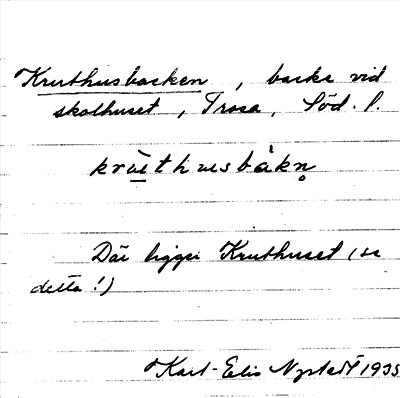 Kruthusbacken, backe vid
skolhuset, Trosa, Söd. l.
krùthusbàkn̥
Där ligger Kruthuset (se
detta!)
Karl-Edis Nystedt 1935